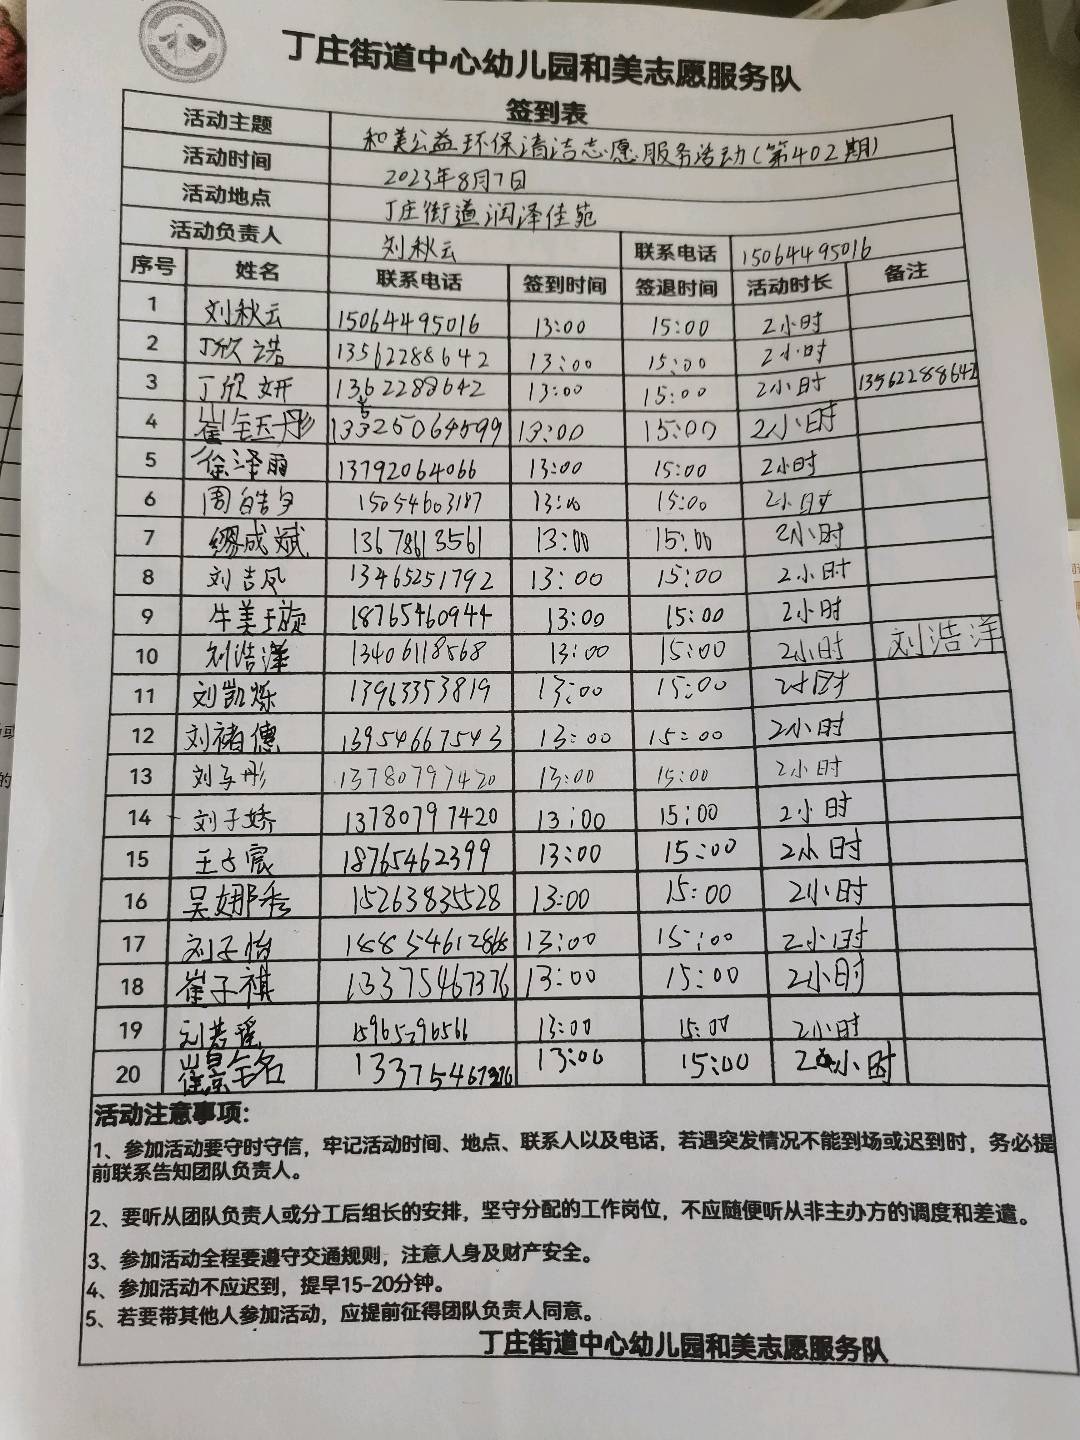 丁庄街道中心幼儿园和美志愿服务队
签到表
活动主题 和美公益环保清洁志愿服务活动(第402期)
活动时间 2023年8月7日
活动地点 丁庄街道润泽佳苑
活动负责人 刘秋云 联系电话 15064495016
序号 姓名 联系电话 签到时间 签退时间 活动时长 备注
1 刘秋云 15064495016 13:00 15:00 2小时
2 丁欣诺 13562288642 13:00 15:00 2小时
3 丁欣妍 1362288642 13:00 15:00 2小时 13562288642
4 崔钰彤 13:00 15:00 2小时
5 徐泽雨 13792064066 13:00 15:00 2小时
6 周皓夕 15054603187 13:00 15:00 2小时
7 缪成斌 13678613561 13:00 15:00 2小时
8 刘吉凤 13465251792 13:00 15:00 2小时
9 牛美璇 18765460944 13:00 15:00 2小时
10 刘浩洋 13406118568 13:00 15:00 2小时 刘浩洋
11 刘凯烁 13963353819 13:00 15:00 2小时
12 刘禇德 13954667543 13:00 15:00 2小时
13 刘子彤 13780797420 13:00 15:00 2小时
14 刘子娇 13780797420 13:00 15:00 2小时
15 王子宸 18765462399 13:00 15:00 2小时
16 吴娜秀 15263835528 13:00 15:00 2小时
17 刘子怡 13:00 15:00 2小时
18 崔子祺 13375467376 13:00 15:00 2小时
19 刘若瑶 15965296566 13:00 15:00 2小时
20 13375467376 13:00 15:00 2小时
活动注意事项:
1、参加活动要守时守信，牢记活动时间、地点、联系人以及电话，若遇突发情况不能到场或迟到时，务必提
前联系告知团队负责人。
2、要听从团队负责人或分工后组长的安排，坚守分配的工作岗位，不应随便听从非主办方的调度和差遣。
3、参加活动全程要遵守交通规则，注意人身及财产安全。
4、参加活动不应迟到，提早15-20分钟。
5、若要带其他人参加活动，应提前征得团队负责人同意。
丁庄街道中心幼儿园和美志愿服务队